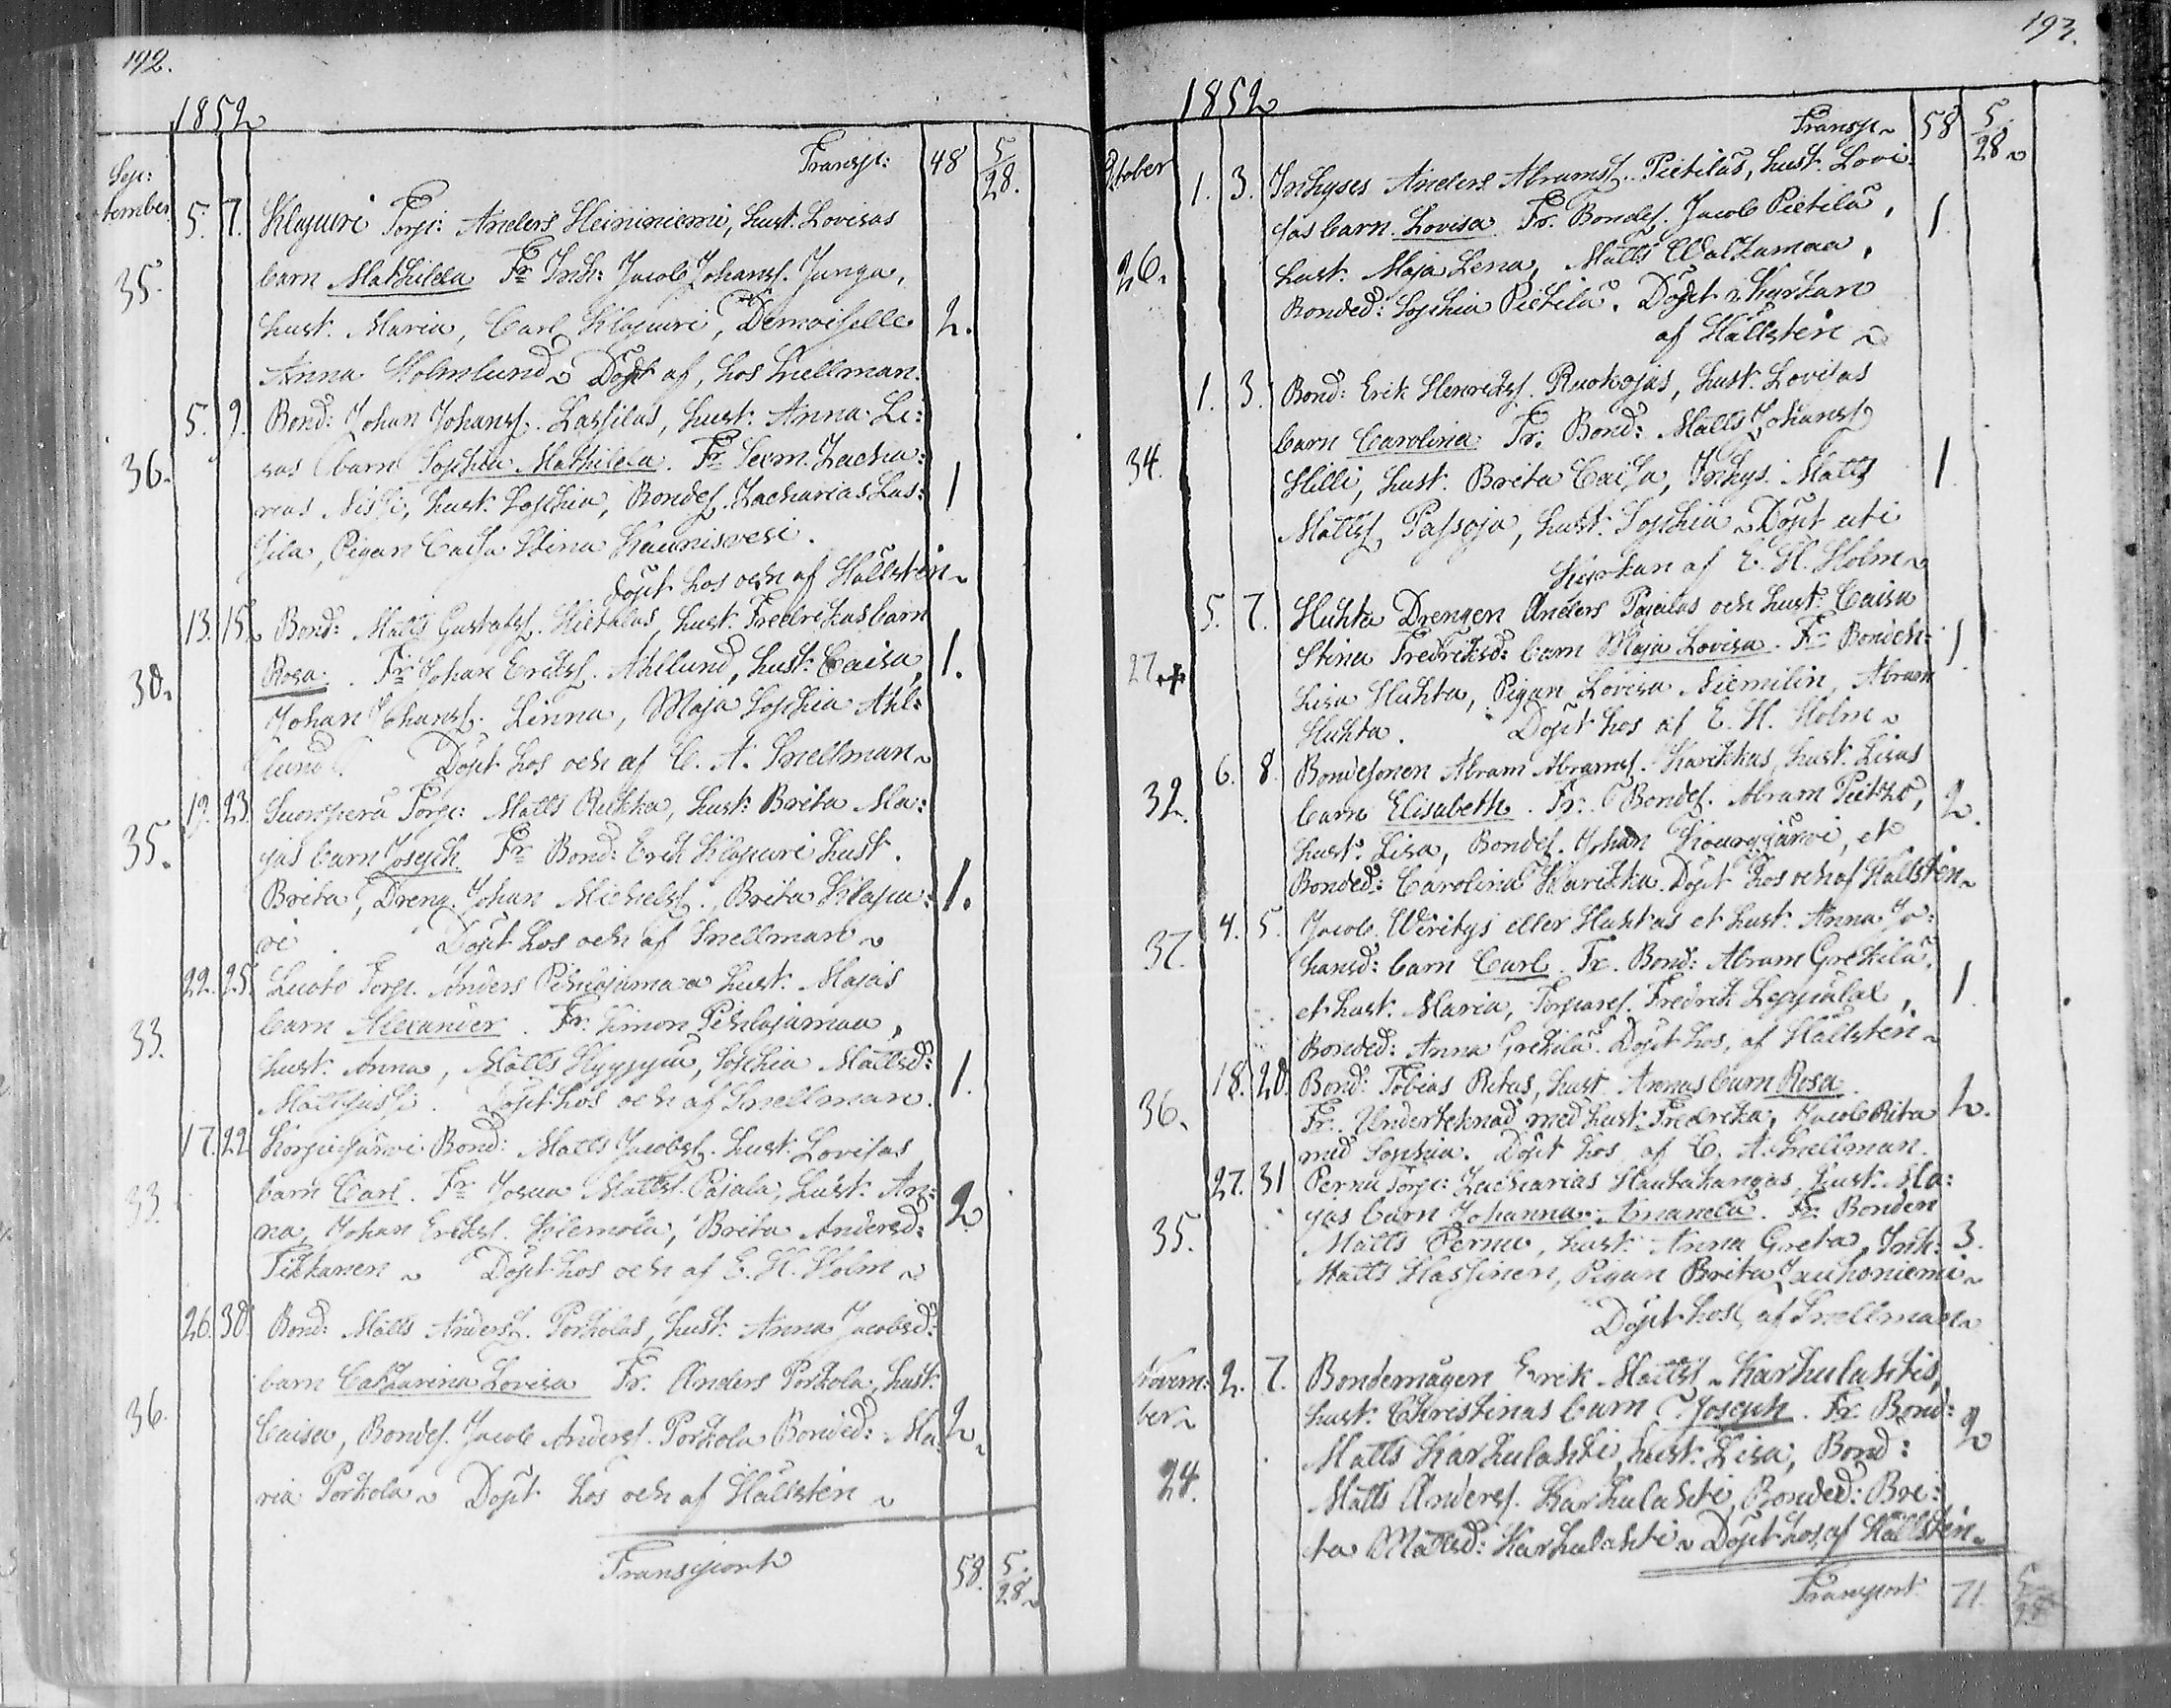 192.
1852
Sep:
tember
Transp: 48 5/28.
5. 7. Klapuri Torp: Anders Heininiemi, hust. Lovisas
35. barn Mathilda Fr Inh: Jacob Johanss. Junga,
hust. Maria, Carl Klapuri, Demoiselle 2.
Anna Holmlund Döpt af, hos Snellman.
5. 9. Bond: Johan Johanss. Lassilas, hust. Anna Li:
36. sas barn Sophia Mathilda. Fr Sexm. Zacha:
rias Nissi, hust. Sophia, Bondes. Zacharias Las: 1
sila, Pigan Caisa Stina Kaunisvesi.
döpt hos och af Hällsten
13. 15. Bond: Matts Gustafss. Hietalas, hust. Fredrikas barn
30. Rosa. Fr Johan Erikss. Ahllund, hust. Caisa, 1.
Johan Johanss. Linna, Maja Sophia Ahl:
lund. Döpt hos och af C. A. Snellman
19. 23. Suonperä Torp: Matts Rukka, hust. Brita Ma:
35. jas barn Joseph Fr Bond: Erik Klapuri hust.
Brita, Dreng. Johan Michelss., Brita Klapu: 1.
ri. Döpt hos och af Snellman
22. 25. Luoto Torp. Anders Pihlajamaa hust. Majas
33. barn Alexander. Fr. Simon Pihlajamaa,
hust. Anna, Matts Hyyppä, Sophia Mattsd: 1.
Döpt hos och af Snellman.
17. 22 Korpijärvi Bond: Matts Jacobss. hust. Lovisas
33. barn Carl. Fr Josua Mattss. Pajala, hust. An: 2
na, Johan Erikss. Klemola, Brita Andersd:
Tikkanen Döpt hos och af E. H. Holm
26. 30. Bond: Matts Anderss. Porkolas, hust. Anna Jacobsd:
barn Catharina Lovisa Fr. Anders Porkola, hust.
36. Caisa, Bondes. Jacob Anderss. Porkola Bonded: Ma: 2
ria Porkola Döpt hos och af Hällsten
Transport 58. 5/28
193.
1852
October
Transp 58 5/28
1. 3. Inhyses Anders Abramss. Pietiläs, hust. Lovi
sas barn. Lovisa Fr. Bondes. Jacob Pietilä, 1
26. hust. Maja Lena, Matts Waltamaa,
Bonded: Sophia Pietilä. Döpt i Kyrkan
af Hällsten
1. 3. Bond: Erik Henrikss. Ruokojas, hust. Lovisas
barn Carolina Fr. Bond: Matts Johanss
34. Hilli, hust. Brita Caisa, Inhys. Matts 1
Mattss. Passoja, hust. Sophia Döpt uti
Kyrkan af E. H. Holm
5. 7. Huhta Drengen Anders Pajalas och hust. Caisa
27. + Stina Fredriksd: barn Maja Lovisa. Fr Bondeh: 1
Lisa Huhta, Pigan Lovisa Niemilin, Abram
Huhta. Döpt hos af E. H. Holm
6. 8. Bondesonen Abram Abramss. Karikkas, hust. Lisas
32. barn Elisabeth. Fr. Bondes. Abram Pietikö, 2.
hust. Lisa, Bondes. Johan Kourajärvi, et
Bonded: Carolina Karikka. Döpt hos och af Hällsten
4. 5. Jacob Wiritys eller Huhtas et hust. Anna Jo:
37. hansd: barn Carl. Fr. Bond: Abram Grekilä,
et hust. Maria, Torpares. Fredrik Leppälax, 1
Bonded: Anna Grekilä. Döpt hos, af Hällsten
18. 20. Bond: Tobias Ritas, hust. Annas barn Rosa.
36. Fr. Underteknad med hust. Fredrika, Jacob Rita 2.
med Sophia. Döpt hos af C. A. Snellman.
27. 31 Pernu Torp: Zacharias Hautakangas, hust. Ma:
jas barn Johanna Amanda. Fr. Bonden
35. Matts Pernu, hust. Anna Greta, Inh: 3.
Matts Hassinen, Pigan Brita Jauhoniemi
Döpt hos af Snellman
Novem:
ber
2. 7. Bondemågen Erik Mattss. Karhulahtis,
hust. Christinas barn Joseph. Fr. Bond: 2
24. Matts Karhulahti, hust. Lisa, Bond:
Matts Anderss. Karhulahti, Bonded: Bri:
ta Mattsd: Karhulahti Döpt hos, af Hällsten
Transport 71. 5/28